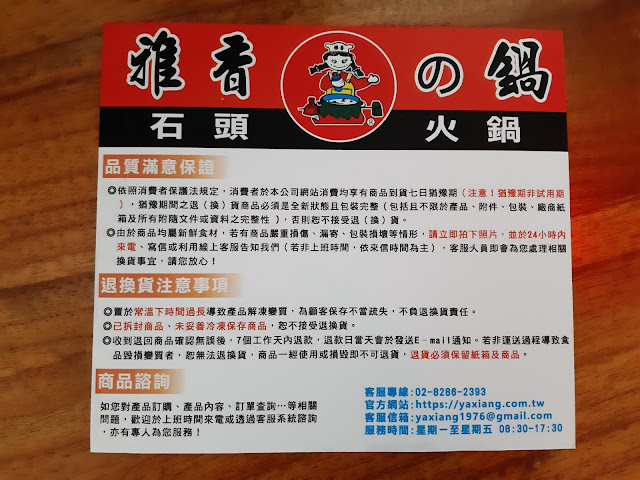 雅香の鍋
石頭火鍋
®
品質滿意保證
◎依照消費者保護法規定，消費者於本公司網站消費均享有商品到貨七日猶豫期（注意！猶豫期非試用期
），猶豫期間之退（換）貨商品必須是全新狀態且包裝完整（包括且不限於產品、附件、包裝、廠商紙
箱及所有附隨文件或資料之完整性），否則恕不接受退（換）貨。
◎由於商品均屬新鮮食材，若有商品嚴重損傷、漏寄、包裝損壞等情形，請立即拍下照片，並於24小時內
來電、寫信或利用線上客服告知我們（若非上班時間，依來信時間為主），客服人員即會為您處理相關
換貨事宜，請您放心！
退換貨注意事項
◎置於常溫下時間過長導致產品解凍變質，為顧客保存不當疏失，不負退換貨責任。
◎已拆封商品、未妥善冷凍保存商品，恕不接受退換貨。
◎收到退回商品確認無誤後，7個工作天內退款，退款日當天會於發送E-mail通知。若非運送過程導致食
品毀損變質者，恕無法退換貨，商品一經使用或損毀即不可退貨，退貨必須保留紙箱及商品。
商品諮詢
如您對產品訂購、產品內容、訂單查詢…等相關
問題，歡迎於上班時間來電或透過客服系統諮詢
，亦有專人為您服務！
客服專線:02-8286-2393
官方網站:https://yaxiang.com.tw
客服信箱:yaxiang1976@gmail.com
服務時間:星期一至星期五 08:30-17:30